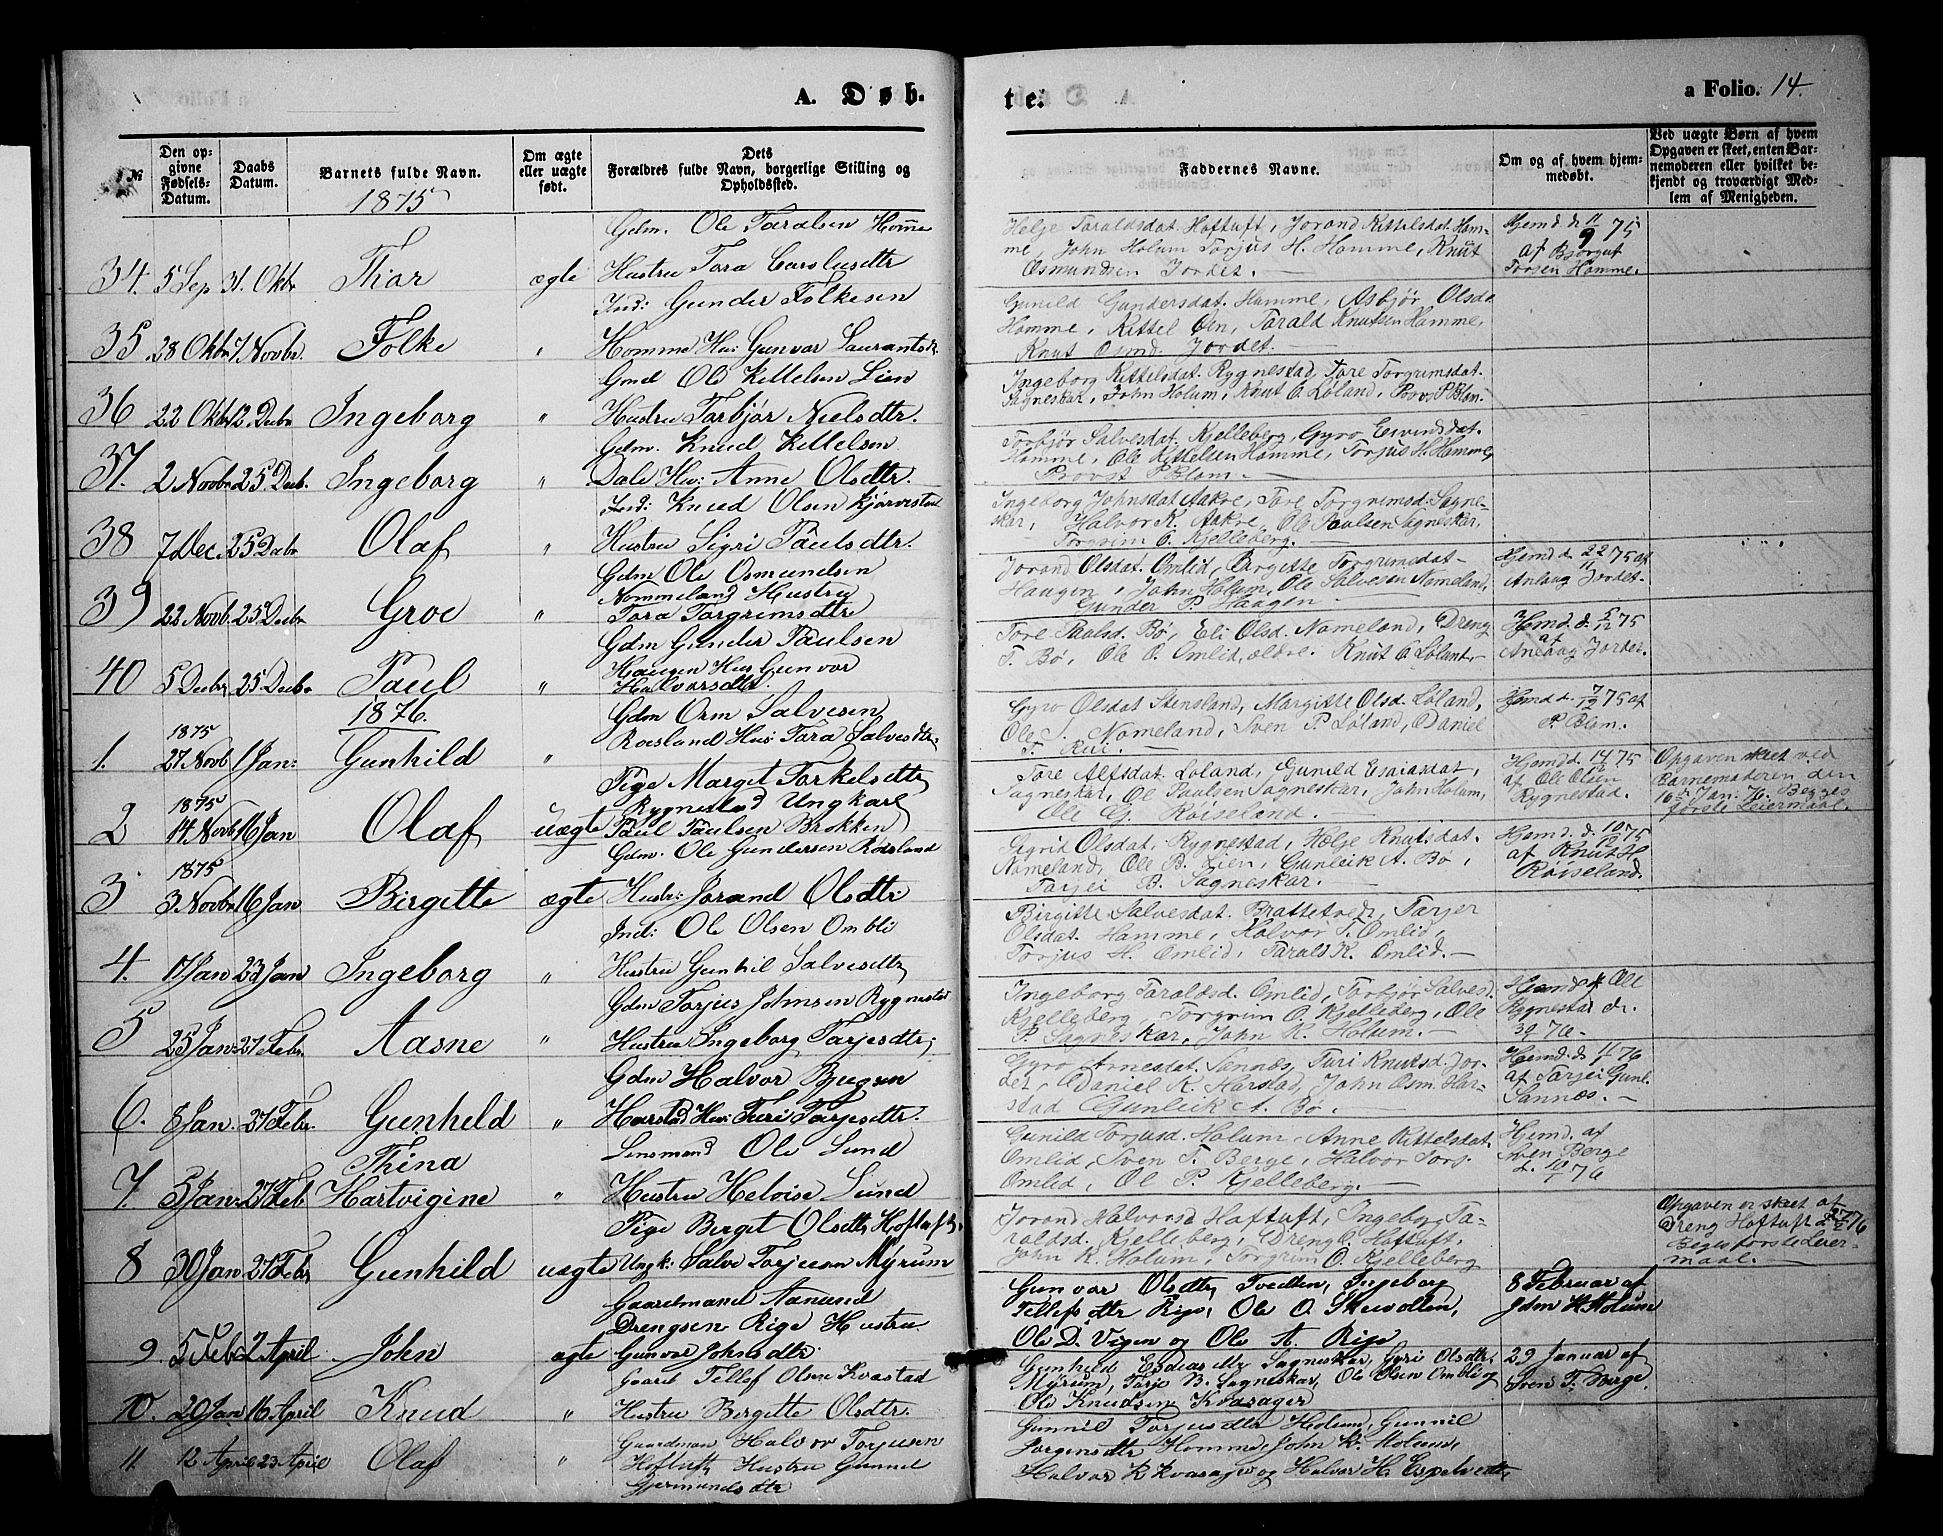 A. Døb-
te:
a Folio. 14.
№
Den opgivne Fødsels-Datum.
Daabs Datum.
Barnets fulde Navn.
Om ægte eller uægte født.
Dets Forældres fulde Navn, borgerlige Stilling og Opholdssted.
Faddernes Navne.
Om og af hvem hjemmedøbt.
Ved uægte Børn af hvem Opgaven er skeet, enten Barnemoderen eller hvilket bekjendt og troværdigt Medlem af Menigheden.
1875
34. 5 Sep 31. Oktr Thor ægte
Gdm. Ole Taralsen Homme
Hustru Tora Carolusdtr
Helje Taraldsdat. Hoftuft, Jorand Kittelsdat. Hom-
me, John Holum Torjus H. Homme, Knut
Osmundsen Jordet.
Hjemd. d. 11/9 75
af Bjorgut
Torsen Homme.
35 28 Oktr 7. Novbr. Folke "
Ind: Gunder Folkesen
Homme Hus: Gunvor Laurantsdtr
Gunild Gundersdat. Homme, Asbjør Olsd.
Homme, Kittel Øen, Tarald Knutsen Homme,
Knut Osmd. Jordet.
36 22 Oktr 12. Decbr Ingeborg "
Gmd Ole Kittelsen Lien
Hustru Torbjør Nielsdtr.
Ingeborg Kittelsdat. Rygnestad, Tore Torgrimsdat.
Sagneskar, John Holum, Knut O. Løland, Provst P Blom.
37. 2 Novbr 25 Decb. Ingeborg "
Gdm. Knud Kittelsen
Dale Hus: Anne Olsdtr.
Torbjør Salvesdat. Kjelleberg, Gyro Eivindsdat.
Homme, Ole Kittelsen Homme, Torjus H. Homme,
Provst P Blom.
38 7 Dec. 25 Decbr Olaf "
Ind: Knud Olsen Kjørvestad
Hustru Sigri Paulsdtr.
Ingeborg Johnsdat Aakre, Tore Torgrimsd. Sagne-
skar, Halvor K. Aakre, Ole Paulsen Sagneskar,
Torgrim O. Kjelleberg.
39 22 Novb. 25 Decbr Groe "
Gdm Ole Osmundsen
Nommeland Hustru
Tora Torgrimsdtr
Jorand Olsdat. Omlid, Birgitte Torgrimsdat
Haugen, John Holum, Ole Salvesen Nomeland,
Gunder P. Haugen.
Hjemd d. 22/11 75 af
Anlaug Jordet.
40 5 Decbr 25 Decbr Paul "
Gdm Gunder Paulsen
Haugen Hus Gunvor
Halvorsdtr.
Tore Paulsd. Bø, Eli Olsd. Nameland, Dreng
T. Bø, Ole O. Omlid, ældre. Knut O. Løland.
Hjemd. d. 5/12 75
af
Anlaug Jordet.
1876.
1. 1875 27 Novb 1 Jan: Gunhild "
Gdm Orm Salvesen
Roesland Hus: Tora Salvesdtr.
Gyro Olsdat Stensland, Margitte Olsd. Løland,
Ole S. Nomeland, Sven P. Løland, Daniel
T. Rui.
Hjemd d. 7/12 75 af
P. Blom.
2 1875 14 Novb 16 Jan Olaf uægte
Pige Marget Torkelsdtr
Rygnestad Ungkarl
Paul Paulsen Brokken
Tore Alfsdat. Løland, Gunild Esaiasdat,
Sagneskar, Ole Paulsen Sagneskar, John Holum,
Ole G. Røiseland.
Hjemd d. 14/11 75
af Ole Olsen
Rygnestad.
Opgaven skeet ved
Barnemoderen den
16de Jan. 76. Begges
første Leiermaal.
3 1875 3. Novbr 16 Jan Birgitte ægte
Gdm. Ole Gundersen Roesland
Hustr: Jorand Olsdtr:
Sigrid Olsdat. Rygnestad, Helje Knutsdat.
Nomeland, Ole B. Lien, Gunleik A. Bø,
Tarjei B. Sagneskar.
Hjemd. d. 10/12 75
af Knut H.
Røiseland.
4. 17 Jan 23 Jan Ingeborg "
Ind: Ole Olsen Ombli
Hustru Gunhil Salvesdtr
Birgitte Salvesdat. Brattetveit, Tarjer
Olsdat. Homme, Halvor T. Omlid,
Torjus H. Omlid, Tarald K. Omlid.
5 25 Jan 27 Febr. Aasne "
Gdm Torjus Johnsen Rygnestad
Hustru Ingeborg Tarjesdtr,
Ingeborg Taraldsd. Omlid, Torbjør Salvesd.
Kjelleberg, Torgrim O. Kjelleberg, Ole
P. Sagneskar, John K. Holum.
Hjemd af Ole
Rygnestad d.
6. 8 Jan. 27 Febr. Gunheld "
Gdm Halvor Bjugsen
Harstad Hus: Turi Tarjesdtr.
Gyro Arnesdat. Sannæs, Turi Knutsd. Jor-
det, Daniel K. Harstad, John Osm. Har-
stad Gunleik A. Bø.
af Tarjei Gunl.
Sannæs.
7. 5 Jan: 27 Feb Thina
Hartvigine "
Lensmand Ole Lund
Hustru Heloise Lund
Gunild Torjusd. Holum, Anne Kittelsdat.
Omlid, Sven T. Berge, Halvor Torj.
Omlid, Ole P. Kjelleberg.
Hjemd. af
Sven Berge
d. 10/1 76
8 30 Jan 27 Febr Gunhild uægte
Pige Berget Olsdtr Hoftuft
Ungk: Salve Torjusen Myrum
Jorand Halvorsd Hoftuft, Ingeborg Ta-
raldsd. Kjelleberg, Dreng O. Hoftuft,
John K. Holum, Torgrim O. Kjelleberg
Opgaven er skeet af
Dreng Hoftuft d. 27/2 76
Beges første Leier-
maal.
9. 5 Feb 2 April John ægte
Gaardmand Aanund
Drengsen Rige Hustru
Gunvor Johnsdtr.
Gunvor Olsdtr Tvedten, Ingeborg
Tellefsdtr Rige, Ole O. Skevollen,
Ole D. Vigen og Ole A. Rige
8 Februar af
Gdm K. Holum
10. 20 Jan 16 April Knud "
Gaard Tellef Olsen Kvastad
Hustru Bergitte Olsdtr.
Gunhild Esaiasdtr Sagneskar, Gyri Olsdtr.
Myrum, Tarje B. Sagneskar, Ole Olsen Ombli og
Ole Knudsen Kvasager
29 Januar af
Sven T. Berge.
11. 12 April 23 April Olaf "
Gaardman Halvor Torjusen
Hoftuft Hustru Gunnel
Gjermundsdtr
Gunnil Torjusdtr Holum, Gunnil
Jorgensdtr Homme, John K. Holum,
Halvor K Kvasager og Halvor H. Espetvedt